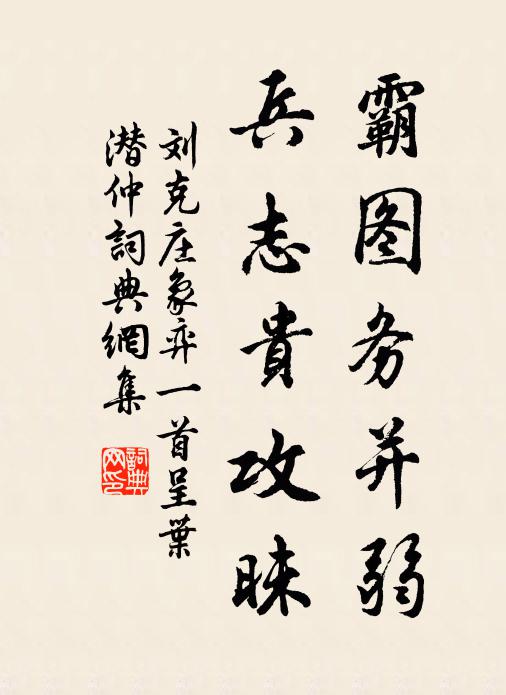 霸图务并弱
兵志貴攻昧
刘克庄象弈一首呈葉
潜仲詞典網集
詞典网印